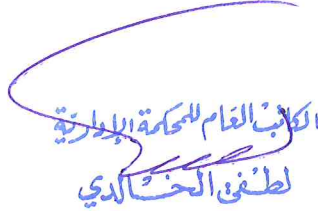 الكاتب العام للمحكمة الإدارية
لطفي الخالدي